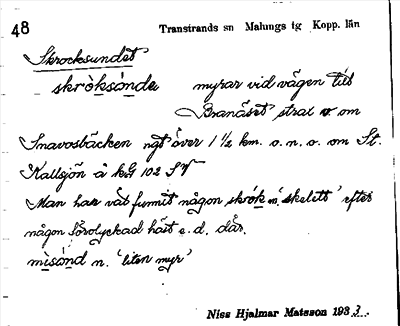 48
Transtrands sn Malungs tg Kopp. län
Skrocksundet
skròksónde myrar vid vägen till
Branäset strax v. om
Smavosbäcken ngt över 1 1/2 km. o.n.o. om St.
Kallsjön å kG 102 SV
Man har väl funnit någon skrók m. 'skelett' efter
någon förolyckad häst e.d. där.
mìsónd n. 'liten myr'
Niss Hjalmar Matsson 1933.